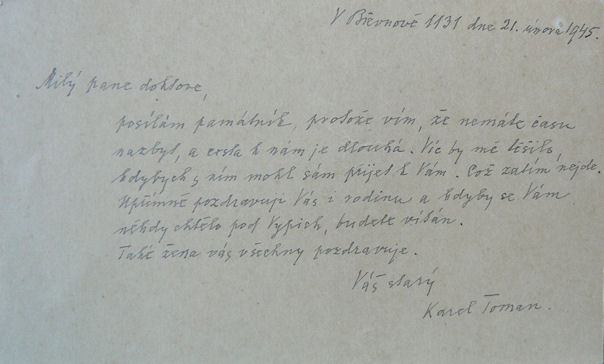 V Břevnově 1131 dne 21. února 1945.
Milý pane doktore,
posílám památník, protože vím, že nemáte času
nazbyt, a cesta k nám je dlouhá. Víc by mě těšilo,
kdybych s ním mohl sám přijet k Vám. Což zatím nejde.
Upřímně pozdravuji Vás i rodinu a kdyby se Vám
někdy chtělo pod Vypich, budete vítán.
Také žena vás všechny pozdravuje.
Váš starý
Karel Toman.